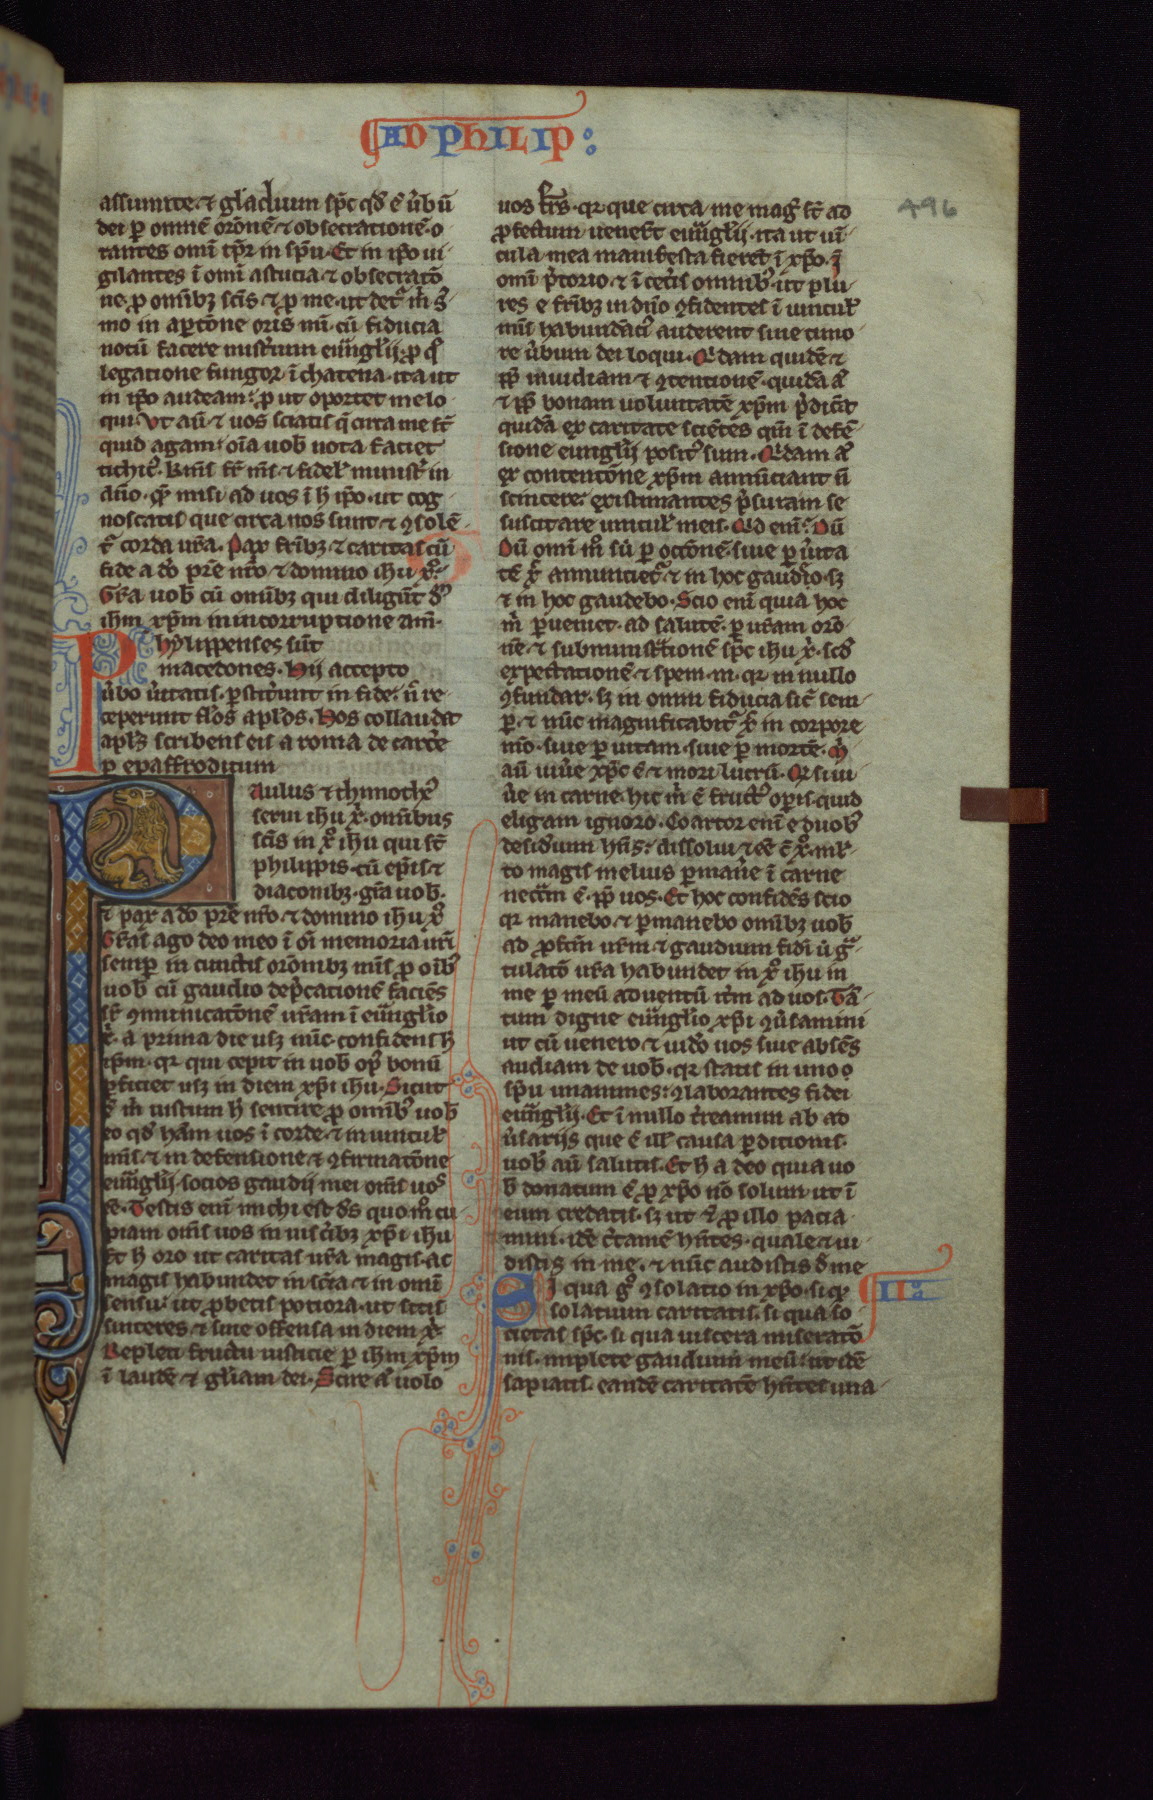 AD PHILIP:
496
assumite. ⁊ gladium sp̄c qd̄ ē u̇bū
dei ꝑ omnē orōnē ⁊ obsecrationē. o
rantes omi tp̄r in sp̄u. Et in ip̄o ui
gilantes ī omi astucia ⁊ obsecratō
ne. ꝓ omībꝫ sc̄is ⁊ ꝓ me. ut det᷑ m̄ s̄
mo in aꝑtōne oris mī. cū fiducia
notū facere mist̄ium euūglij ꝓ q̄
legatione fungor ī chatena. ita ut
in ip̄o audeam. ꝓ ut oportet me lo
qui. Vt aū ⁊ uos sciatis q̄ circa me st̄
quid agam. oīa uob̄ nota faciet
tichic᷒. kīns fr̄ m̄s ⁊ fidel̄ minist̄ in
dn̄o. qē misi ad uos ī h̄ ip̄o. ut cog
noscatis que circa nos sunt ⁊ ꝯsolē
t᷑ corda ur̄a. Pax fr̄ibꝫ ⁊ caritas cū
fide a do̅ pr̄e nr̄o ⁊ domino ihu xp̄o.
Gr̄a uob̄ cū omībꝫ qui diligūt d̄
ihm xp̄m in incorruptione am̄.
Phylippenses sūt
macedones. Hij accepto
u̇bo u̇itatis. ꝑstit̄unt in fide. n̄ re
ceperunt fl̄os apl̄os. Hos collaudat
apl̄s scribens eis a roma de carc̄e
ꝑ epaffroditum
Paulus ⁊ thimoth᷒
serui ihu x̄. omībus
sc̄is in x̄o ihu qui st̄
philippis. cū ep̄is ⁊
diaconibꝫ. gr̄a uob̄.
⁊ pax a do̅ pr̄e nr̄o ⁊ domino ihu x̄o
Gr̄as ago deo meo ī oī memoria ur̄i
semꝑ in cunctis orōnibꝫ mīs ꝓ oībꝫ
uob̄ cū gaudio dep̄cationē faciēs
sr̄ ꝯmunicatōnē ur̄am ī euūglio
x̄. a prima die usꝫ nūc. confidens h̄
ip̄m. qr qui cepit in uob̄ op᷒ bonū
ꝑficiet usꝫ in diem xp̄i ihu. Sicut
ē m̄ iustum h̄ sentire ꝓ omībꝫ uob̄
eo qd̄ ham̄ uos ī corde. ⁊ in uincul̄
mīs. ⁊ in defensione ⁊ ꝯfirmatōne
euūglij. socios gaudij mei omīs uos
ēē. Testis enī michi est d̄s quom̄o cu
piam omīs uos in uisc̄ibꝫ xp̄i ihu
Et h̄ oro ut caritas ur̄a magis ac
magis habundet in scīa ⁊ in omī
sensu. ut ꝓbetis potiora. ut sitis
sinceres ⁊ sine offensa in diem x̄.
Repleti fructu iusticie ꝑ ihm xp̄m
ī laudē ⁊ gl̄iam dei. Scire aū uolo
uos fr̄s. qr que circa me mag̅ st̄ ad
ꝓfectum uenert̄ euūglij. ita ut uī
cula mea manifesta fieret ī xp̄o. ī
omi p̄torio. ⁊ ī cet̄is omnibꝫ. ut plu
res e fr̄ibꝫ in dn̄o ꝯfidentes ī uincul̄
mīs habundāci᷒ auderent sine timo
re u̇bum dei loqui. Qīdam quidē ⁊
ꝓp̄t inuidiam ⁊ ꝯtentionē. quidā aū
⁊ ꝓp̄t bonam uoluntatē xp̄m p̄dicāt
quidā ex caritate sciētes qm̄ ī defē
sione euūglij posit᷒ sum. Qīdam aū
ex contentōne xp̄m annūciant n̄
scincere. existimantes p̄suram se
suscitare uincul̄ meis. Qīd enī? Dū
Dū omi m̊ siū ꝑ occōnē siue ꝑ u̇ita
tē x̄ annunciet᷑. ⁊ in hoc gaudeo. sꝫ
⁊ in hoc gaudebo. Scio enī quia hoc
m̄ ꝓueniet. ad salutē. ꝑ ur̄am orō
nē ⁊ subminist̄tionē sp̄c ihu x̄. scd̄
expectationē ⁊ spem .m. qr in nullo
ꝯfundar. sꝫ in omni fiducia sic̄ sem
ꝑ. ⁊ nūc magnificabit᷑ x̄ in corpore
mō. siue ꝑ uitam siue ꝑ mortē. M̄
aū uiu̇e xp̄c ē ⁊ mori lucrū. Qr si ui
u̇e in carne. hic m̄ ē fruct᷒ oꝑis. quid
eligam ignoro. Coartor enī e duobꝫ
desid̄ium hn̄s. dissolui ⁊ ēē c̄ x̄o. ml̄
to magis melius ꝑman̄e ī carne
necc̄m ē. ꝓp̄t uos. Et hoc confidēs scio
qr manebo. ⁊ ꝑmanebo omībꝫ uob̄
ad ꝓfc̄m ur̄m ⁊ gaudium fidi ū gr̄a
tulatō ur̄a habundet in x̄o ihu in
me ꝑ meū aduentū it̄m ad uos. Tā
tum digne euūglio xp̄i ꝯu̇samini
ut cū uenero ⁊ uid̄o uos siue absēs
audiam de uob̄. qr statis in uno o
sp̄u unanimes. ꝯlaborantes fidei
euūglij. Et ī nullo t̄reamini ab ad
u̇sarijs que ē ill̄ causa ꝑditionis.
uob̄ aū salutis. Et h̄ a deo quia uo
b̄ donatum ē ꝓ xp̄o nō solum ut ī
eum credatis. sꝫ ut ⁊ ꝓ illo pacia
mini. idē c̄tamē hn̄tes. quale ⁊ ui
distis in me. ⁊ nūc audistis d̄ me
Si qua g̊ ꝯsolatio in xp̄o. si qd̄
II.
solatium caritatis. si qua so
cietas sp̄c. si qua uiscera miseratō
nis. implete gaudium meū ut idē
sapiatis. eandē caritatē hn̄tes una